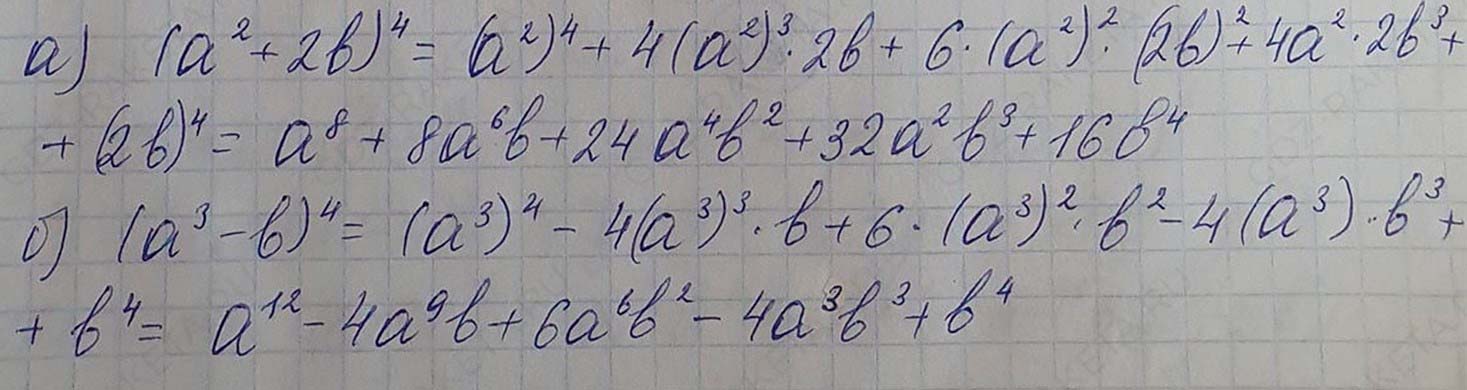 а) (a² + 2b)⁴ = (a²)⁴ + 4(a²)³ · 2b + 6 · (a²)² · (2b)² + 4a² · 2b³ +
+ (2b)⁴ = a⁸ + 8a⁶b + 24a⁴b² + 32a²b³ + 16b⁴
б) (a³ - b)⁴ = (a³)⁴ - 4(a³)³ · b + 6 · (a³)² · b² - 4(a³) · b³ +
+ b⁴ = a¹² - 4a⁹b + 6a⁶b² - 4a³b³ + b⁴